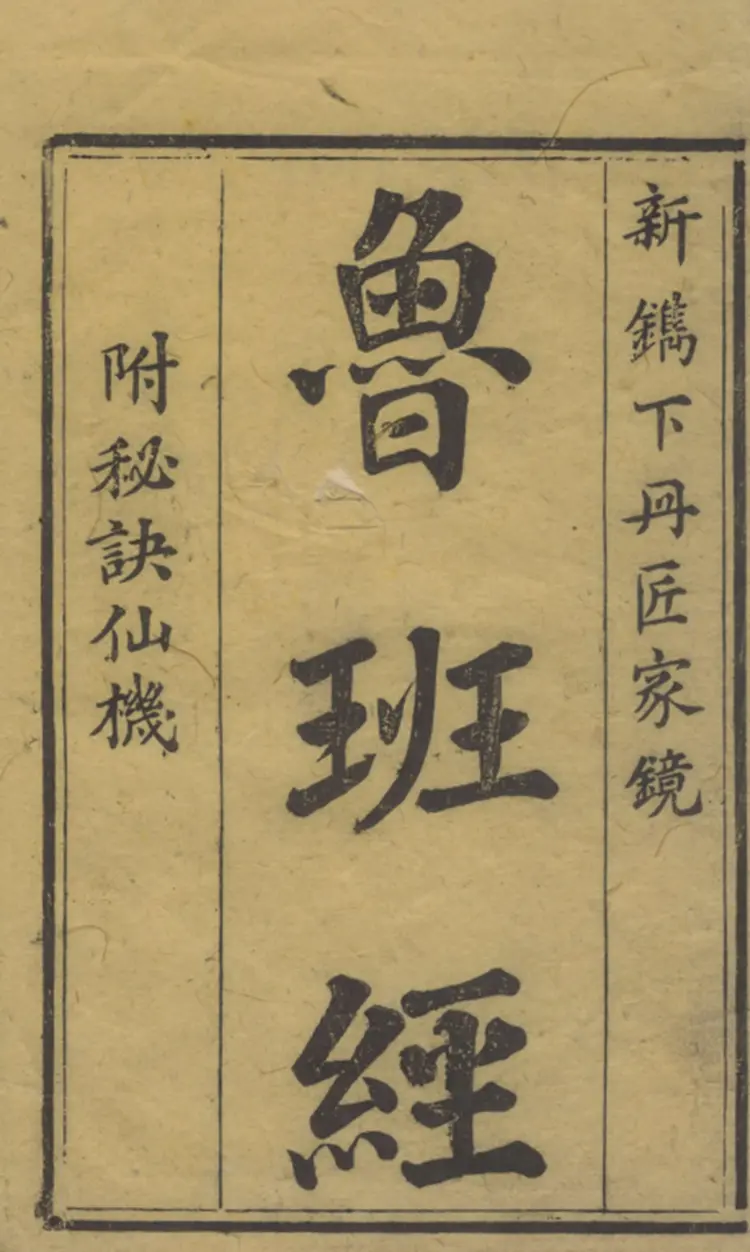 新鐫下丹匠家鏡
魯班經
附秘訣仙機